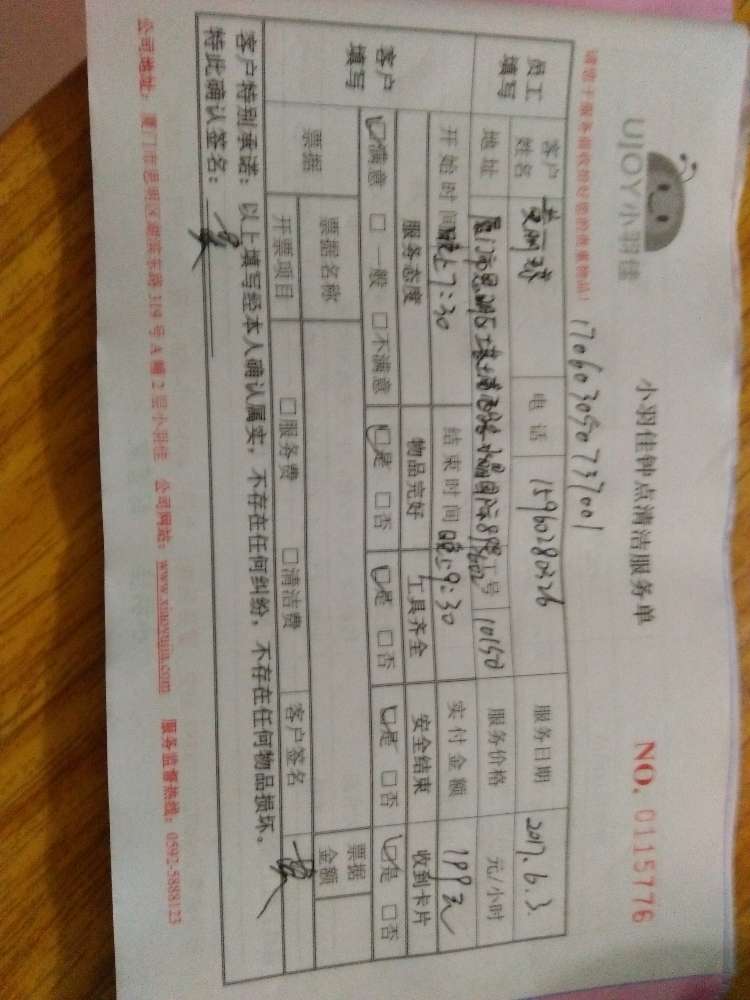 UJOY小羽佳
小羽佳钟点清洁服务单
NO. 0115776
170603050737001
员工填写
客户姓名 电话 服务日期 2017.6.3
地址 厦门市思明区 工号 10150 服务价格 元/小时
开始时间 晚上7:30 结束时间 晚上9:30 实付金额 199元
客户填写
服务态度 物品完好 工具齐全 安全结束 收到卡片
☑满意 □一般 □不满意 ☑是 □否 ☑是 □否 ☑是 □否 ☑是 □否
票据 票据名称 票据金额
开票项目 □服务费 □清洁费 客户签名
客户特别承诺：以上填写经本人确认属实，不存在任何纠纷，不存在任何物品损坏。
特此确认签名：
公司地址：厦门市思明区湖滨东路319号A幢2层小羽佳 公司网站：www.xiaoyujia.com 服务监督热线：0592-5888123